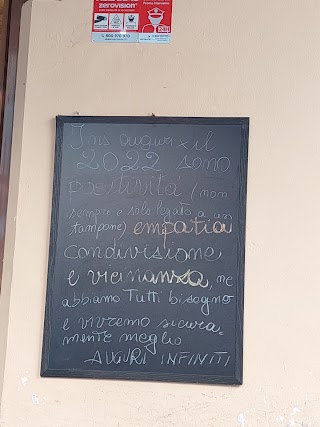 zerovision®
24H
I mio augurio x il
2022 sono
positività (non
sempre e solo legato a un
tampone) empatia
condivisione,
e vicinanza, ne
abbiamo Tutti bisogno
e vivremo sicura=
mente meglio
AUGURI INFINITI